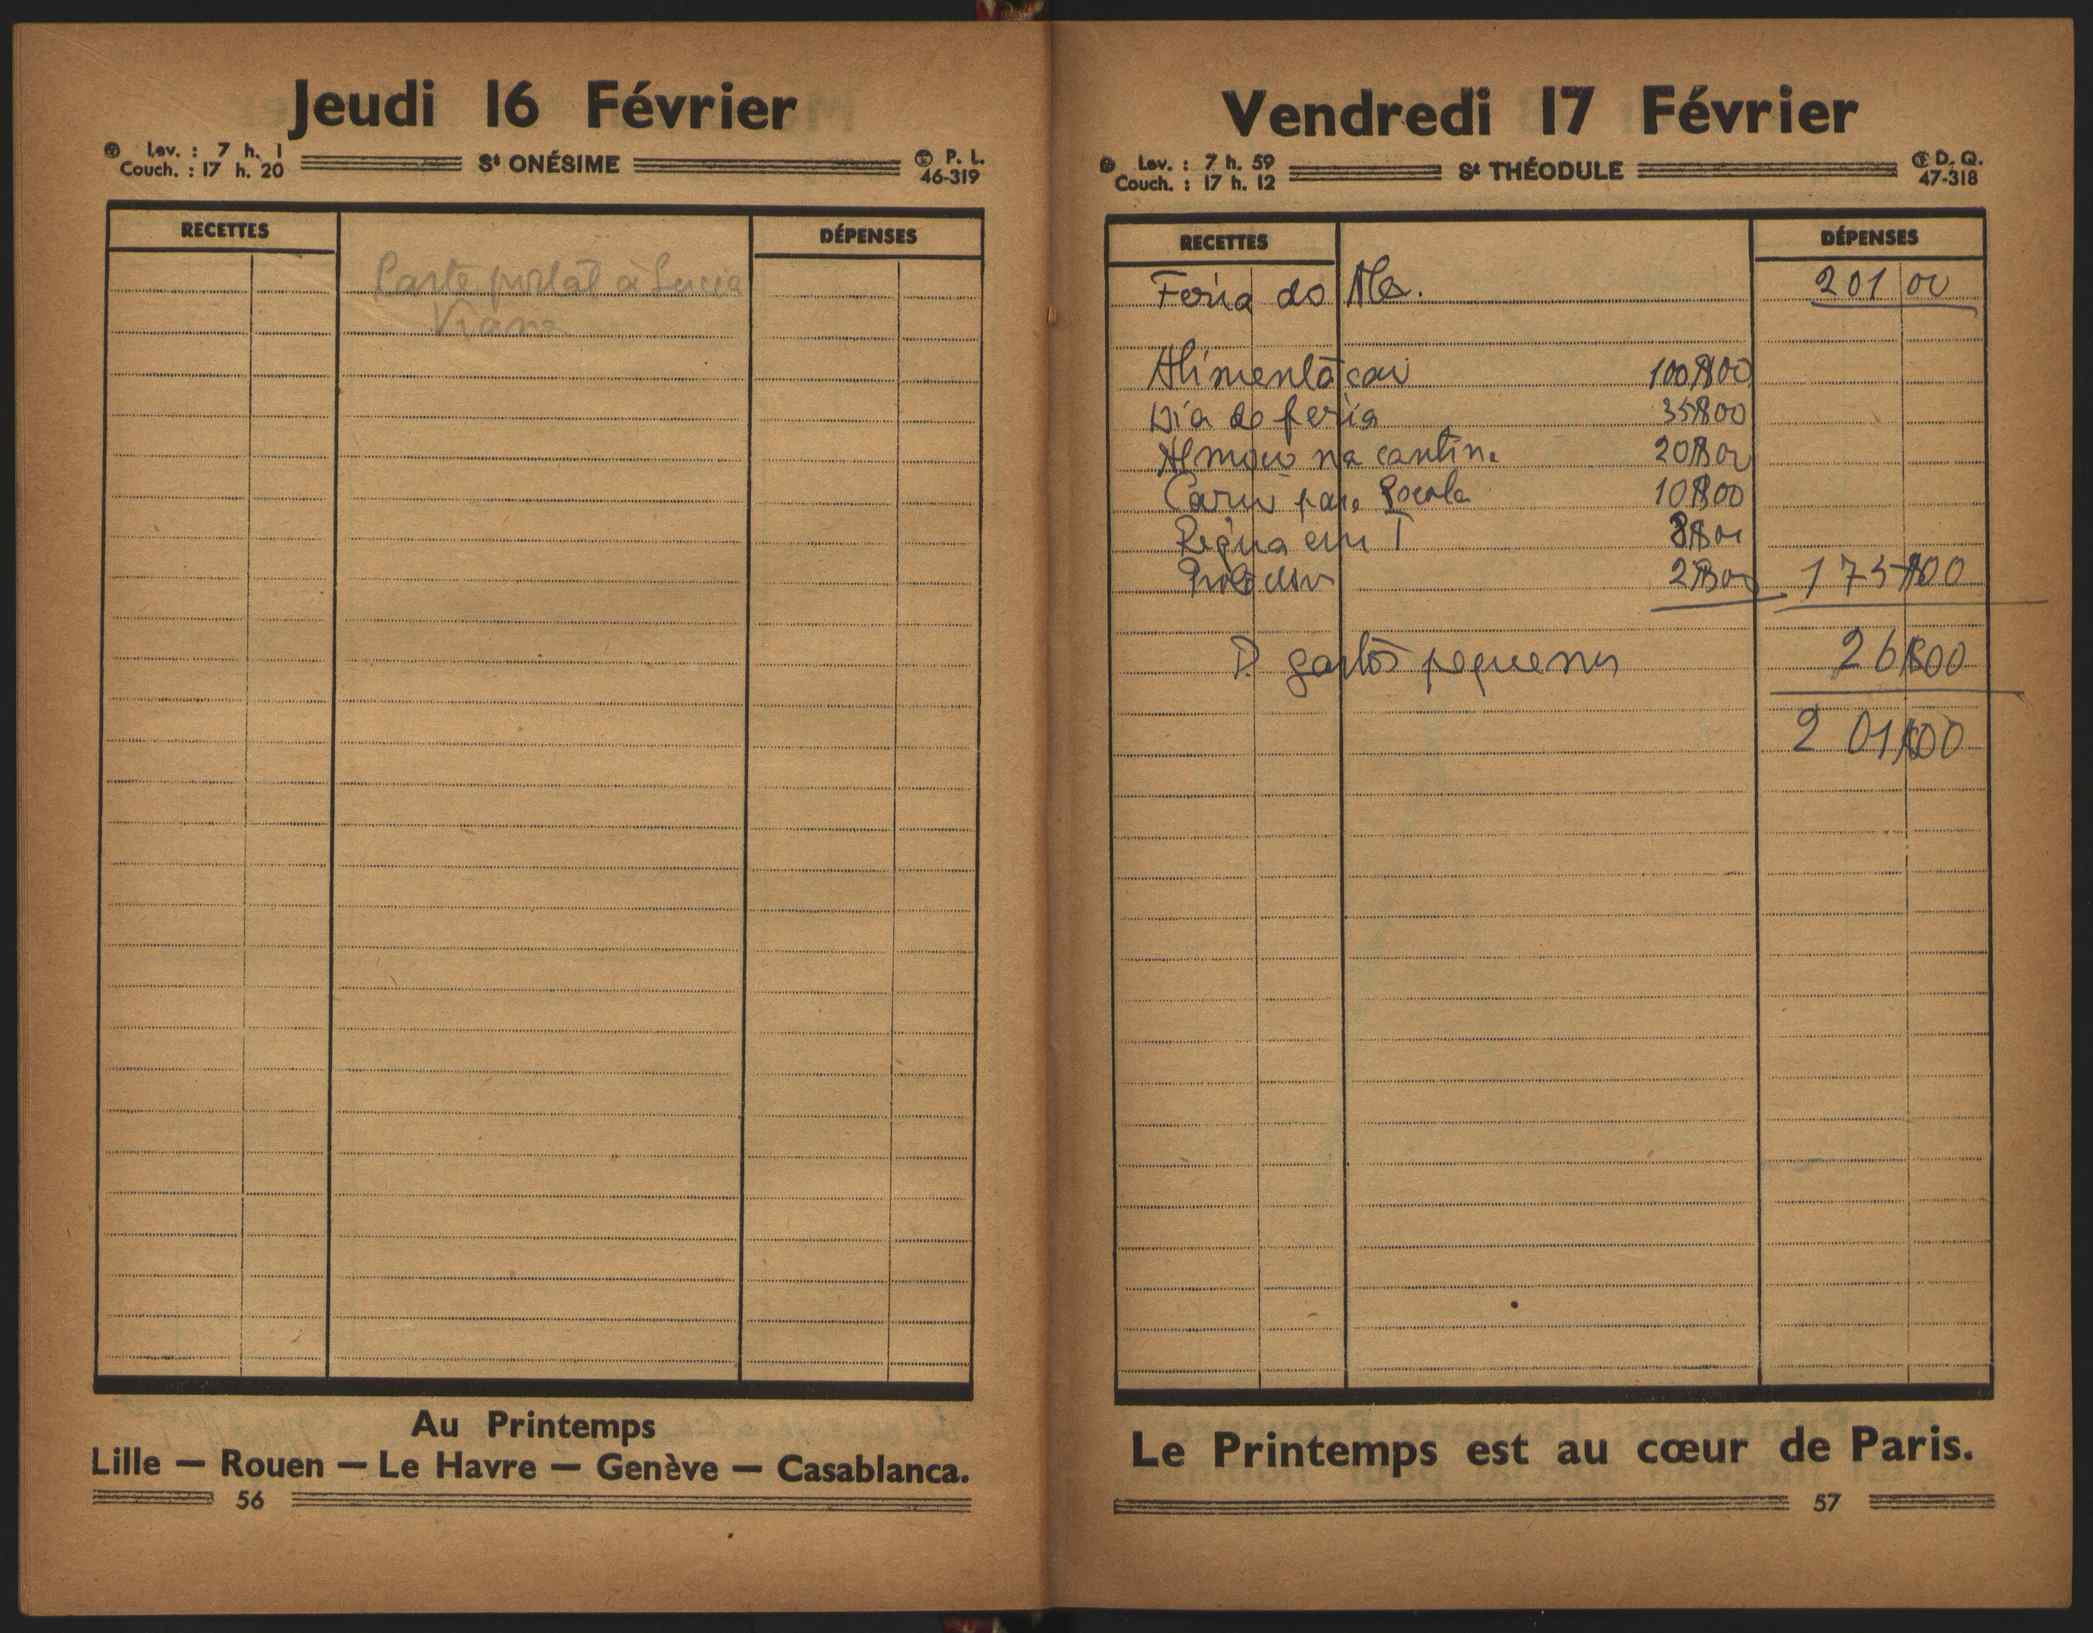 Jeudi 16 Février
Lev. : 7 h. 1
Couch. : 17 h. 20
St ONÉSIME
P. L.
46-319
RECETTES
DÉPENSES
Carte postal à Lucia
Viana
Au Printemps
Lille — Rouen — Le Havre — Genève — Casablanca.
56
Vendredi 17 Février
Lev. : 7 h. 59
Couch. : 17 h. 12
St THÉODULE
D. Q.
47-318
RECETTES
DÉPENSES
Feria do Mes. 201 00
Alimentãcau 100$00
Dia de feria 35$00
Almoco na cantina 20$00
para 10$00
Regua em T 8$00
2$00 175$00
D. gastos pequenos 26$00
201$00
Le Printemps est au cœur de Paris.
57